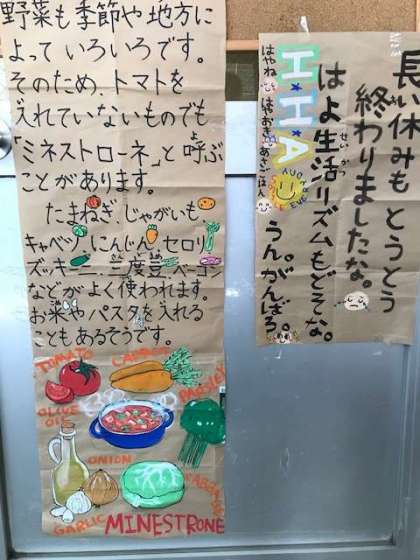 野菜も季節や地方に
よっていろいろです。
そのため、トマトを
入れていないものでも
「ミネストローネ」と呼ぶ
ことがあります。
たまねぎ、じゃがいも、
キャベツ、にんじん、セロリ、
ズッキーニ、三度豆、ベーコン
などがよく使われます。
お米やパスタを入れる
こともあるそうです。
TOMATO
CARROT
PARSLEY
OLIVE
OIL
ONION
CABBAGE
GARLIC
MINESTRONE
長い休みもとうとう
終わりましたな。
せいかつ
はよ生活リズムもどそな。
H・H・A
うん。がんばろ。
はやね はやおき あさごはん